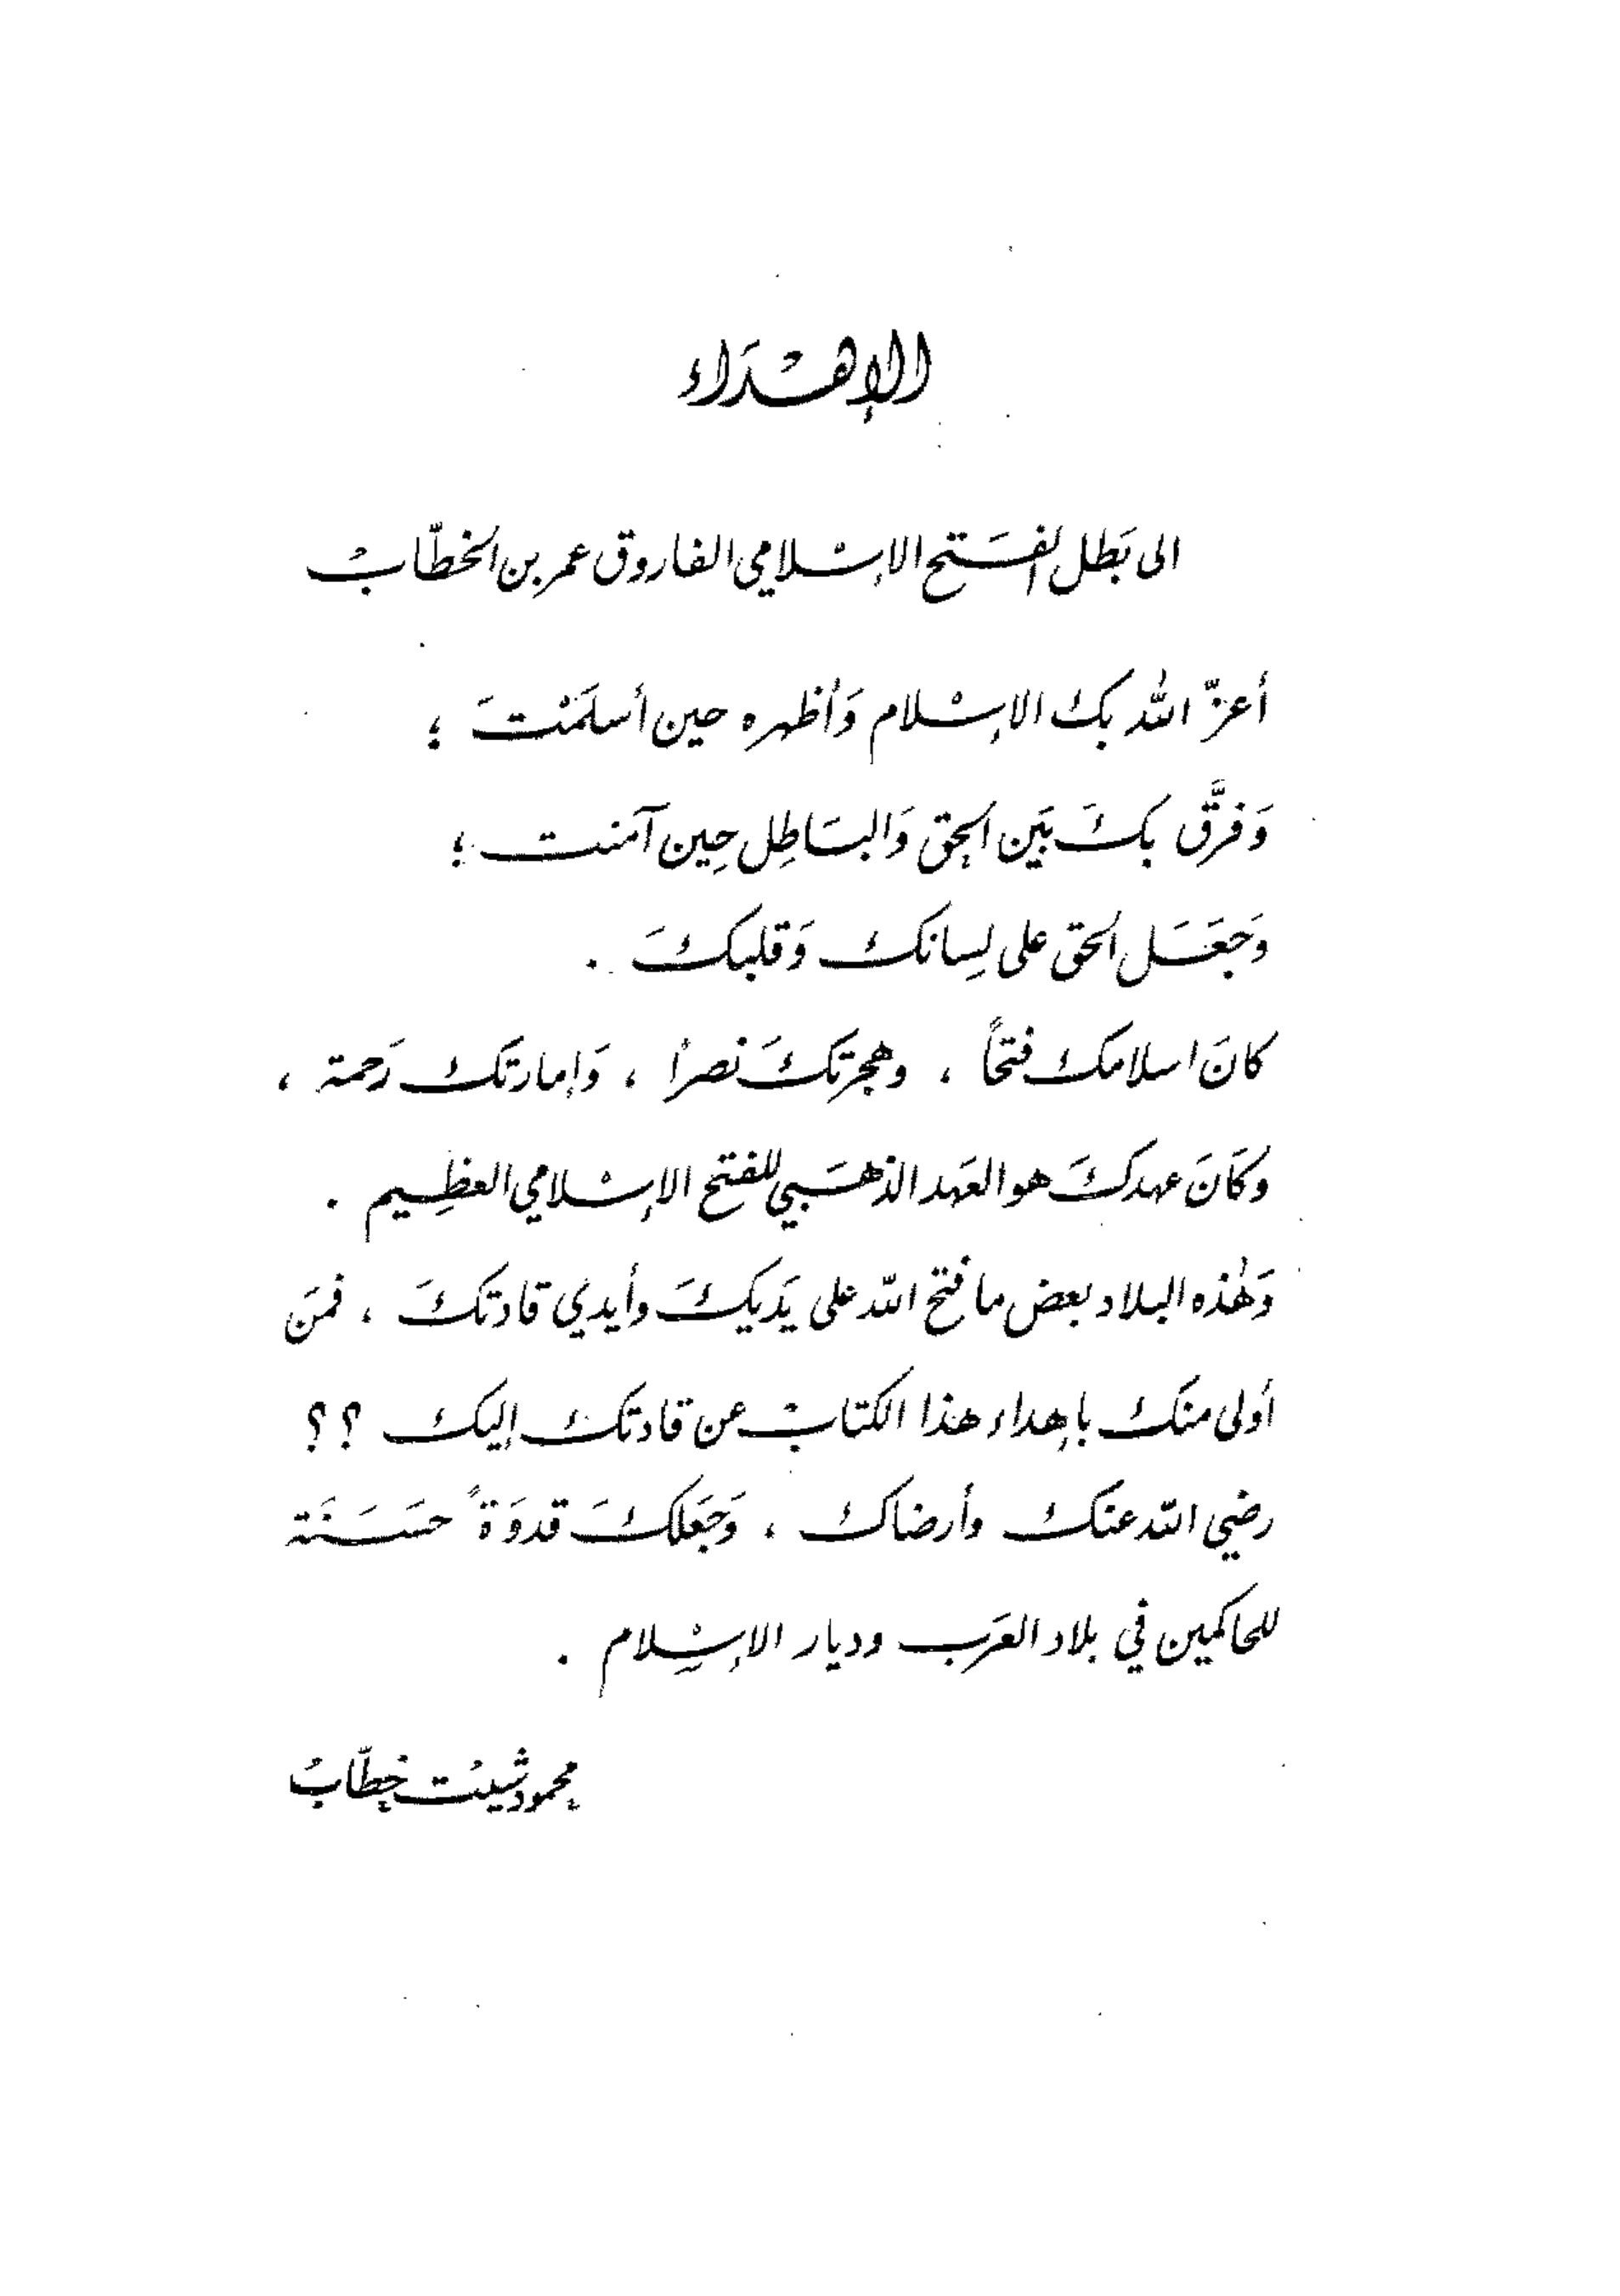 الإهْدَاء
الى بَطل الفَتح الإسْلامي الفاروق عمر بن الخطّاب
أعزّ اللّه بك الإسْلام وَأظهره حين أسلَمْتَ ؛
وَفرَّق بكَ بَين الحق وَالبَاطِل حِين آمنت ؛
وَجَعَل الحق على لِسانك وَقلبكَ .
كانَ اسلامك فتحًا ، وهجرتكَ نصرًا ، وَإمارتك رَحمة ،
وكَانَ عهدكَ هو العَهد الذهَبي للفتح الإسْلامي العظِيم .
وَهٰذه البلاد بعض ما فتح اللّه على يَديكَ وأيدي قادتكَ ، فمَن
أولى منك بإهداء هذا الكتاب عن قادتك إليك ؟؟
رضي اللّه عنك وأرضاك ، وَجَعَلكَ قدوَةً حَسَنَة
للحاكمين في بلاد العَرب وديار الإسْلام .
محمود شيت خطّاب